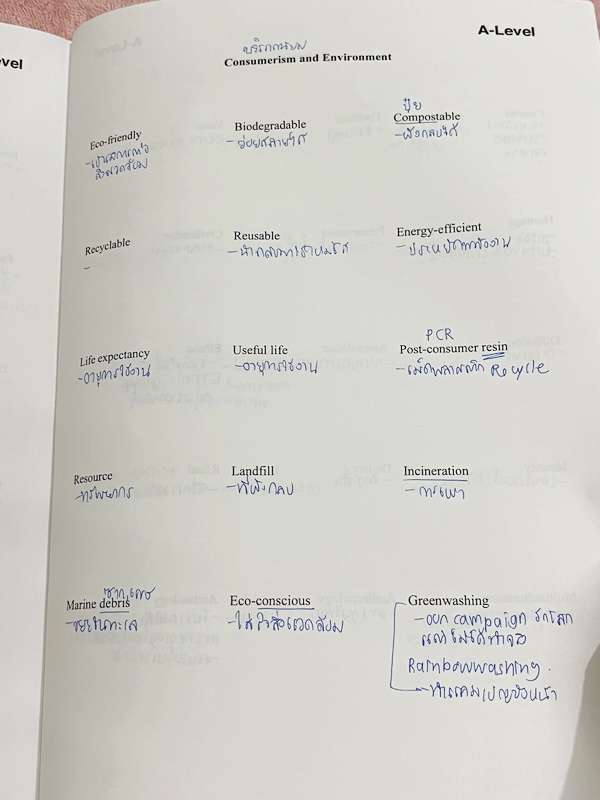 vel
A-Level
บริโภคนิยม
Consumerism and Environment
Eco-friendly
- เป็นมิตรต่อ
สิ่งแวดล้อม
Biodegradable
- ย่อยสลายได้
ปุ๋ย
Compostable
- ฝังกลบได้
Recyclable
-
Reusable
- นำกลับมาใช้ใหม่ได้
Energy-efficient
- ประหยัดพลังงาน
Life expectancy
- อายุการใช้งาน
Useful life
- อายุการใช้งาน
PCR
Post-consumer resin
- เม็ดพลาสติก Recycle
Resource
- ทรัพยากร
Landfill
- ที่ฝังกลบ
Incineration
- การเผา
ซาก, เศษ
Marine debris
- ขยะในทะเล
Eco-conscious
- ใส่ใจสิ่งแวดล้อม
Greenwashing
- ออก campaign รักโลก
แต่ไม่ได้ทำจริง
Rainbowwashing.
- ทำแคมเปญบังหน้า